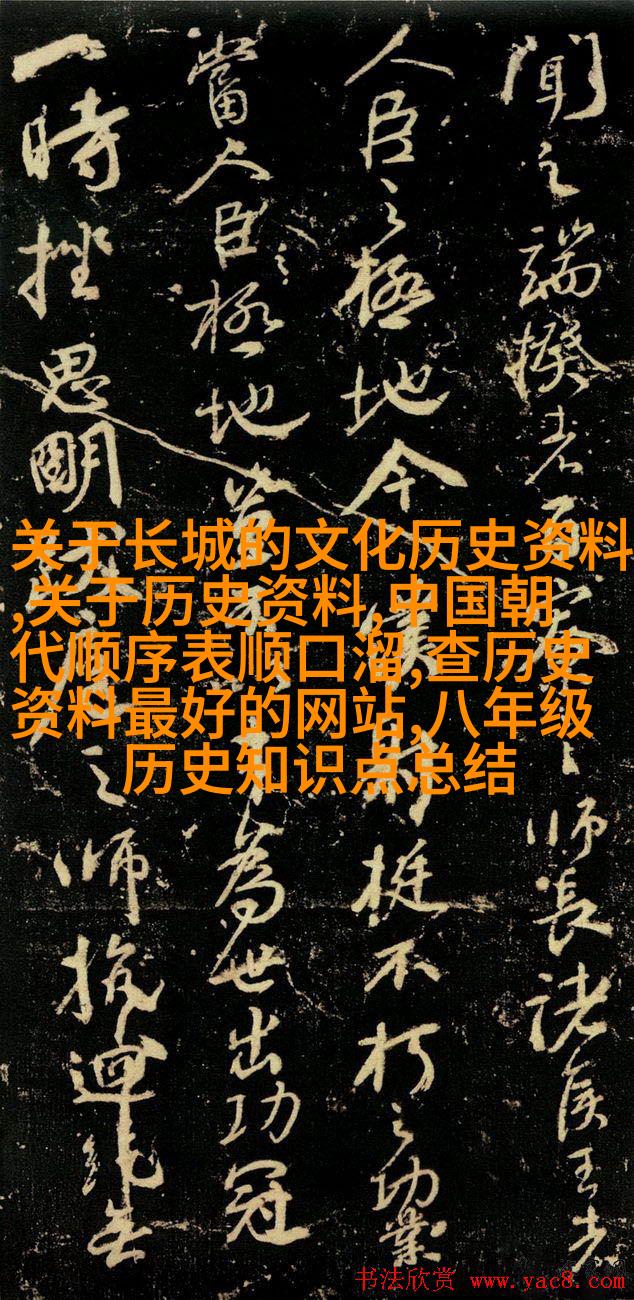 聞之端揆者百寮之師長諸侯王者
人臣之極地今僕射挺不朽之功業
當人臣之極地豈為世出功冠
一時挫思明之師抗迴紇無
关于长城的文化历史资料
,关于历史资料,中国朝
代顺序表顺口溜,查历史
资料最好的网站,八年级
历史知识点总结
书法欣赏 www.yac8.com